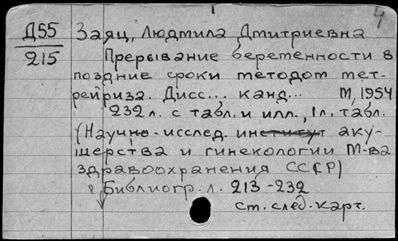 4
Д55 Заяц, Людмила Дмитриевна
215 Прерывание беременности в
поздние сроки методом мет-
рейриза. Дисс... канд... М, 1954
232 л. с табл. и илл., 1 л. табл.
(Научно-исслед. институт аку-
шерства и гинекологии М-ва
здравоохранения СССР)
Библиогр. л. 213-232
см. след. карт.